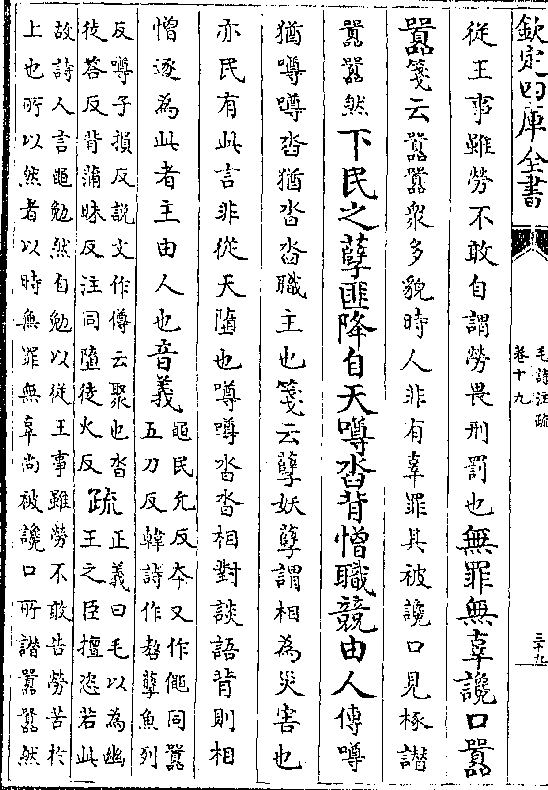 欽定四庫全書
毛詩注疏
卷十九
三十九
從王事雖勞不敢自謂勞畏刑罰也無罪無辜讒口囂
囂箋云囂囂衆多貌時人非有辜罪其被讒口見椓譖
囂囂然下民之孽匪降自天噂沓背憎職競由人傳噂
猶噂噂沓猶沓沓職主也箋云孽妖孽謂相為災害也
亦民有此言非從天墮也噂噂沓沓相對談語背則相
憎逐為此者主由人也音義
黽民允反本又作僶同囂
五刀反韓詩作嗸孽魚列
反噂子損反説文作僔云聚也沓
徒荅反背蒲昧反注同墮徒火反
疏
正義曰毛以為幽
王之臣擅恣若此
故詩人言黽勉然自勉以從王事雖勞不敢告勞苦於
上也所以然者以時無罪無辜尚被讒口所譖囂囂然